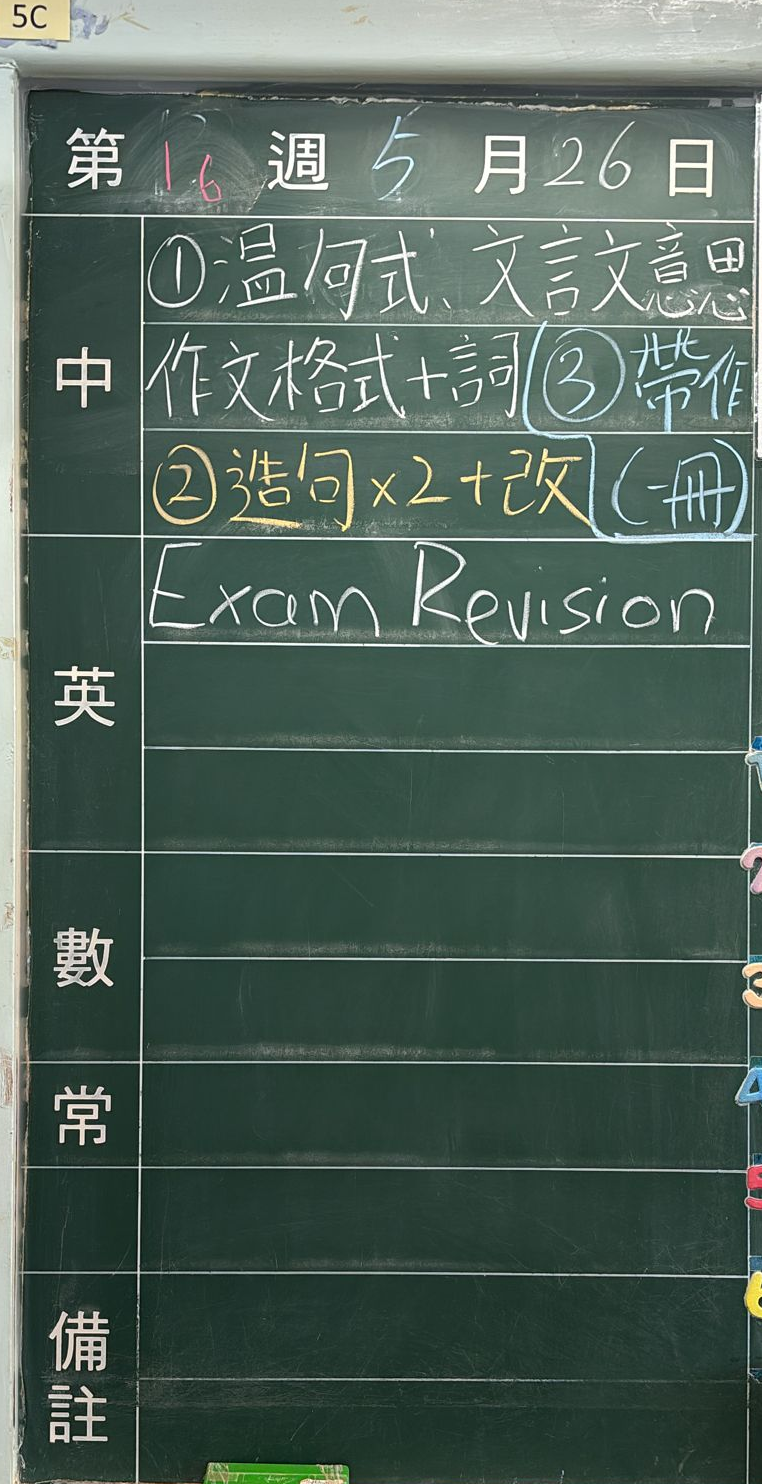 5C
第 16 週 5 月 26 日
中
①温句式、文言文意思
作文格式+詞 ③帶作
②造句×2+改 (一冊)
英
Exam Revision
數
常
備註
1
2
3
4
5
6